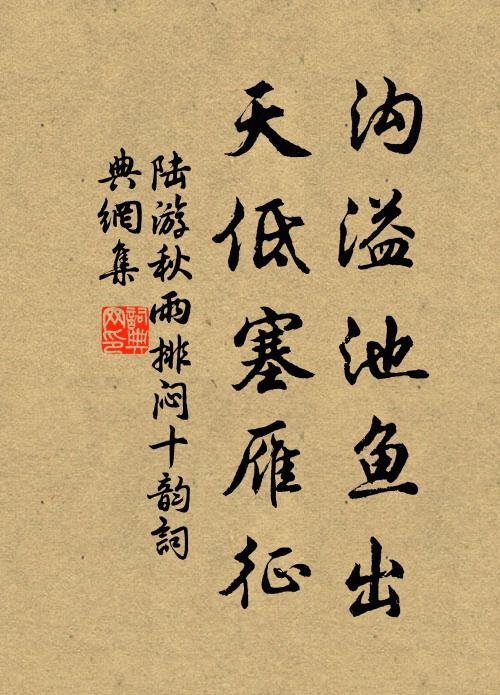 沟溢池鱼出
天低塞雁征
陆游秋雨排闷十韵词
典網集
詞典
网印